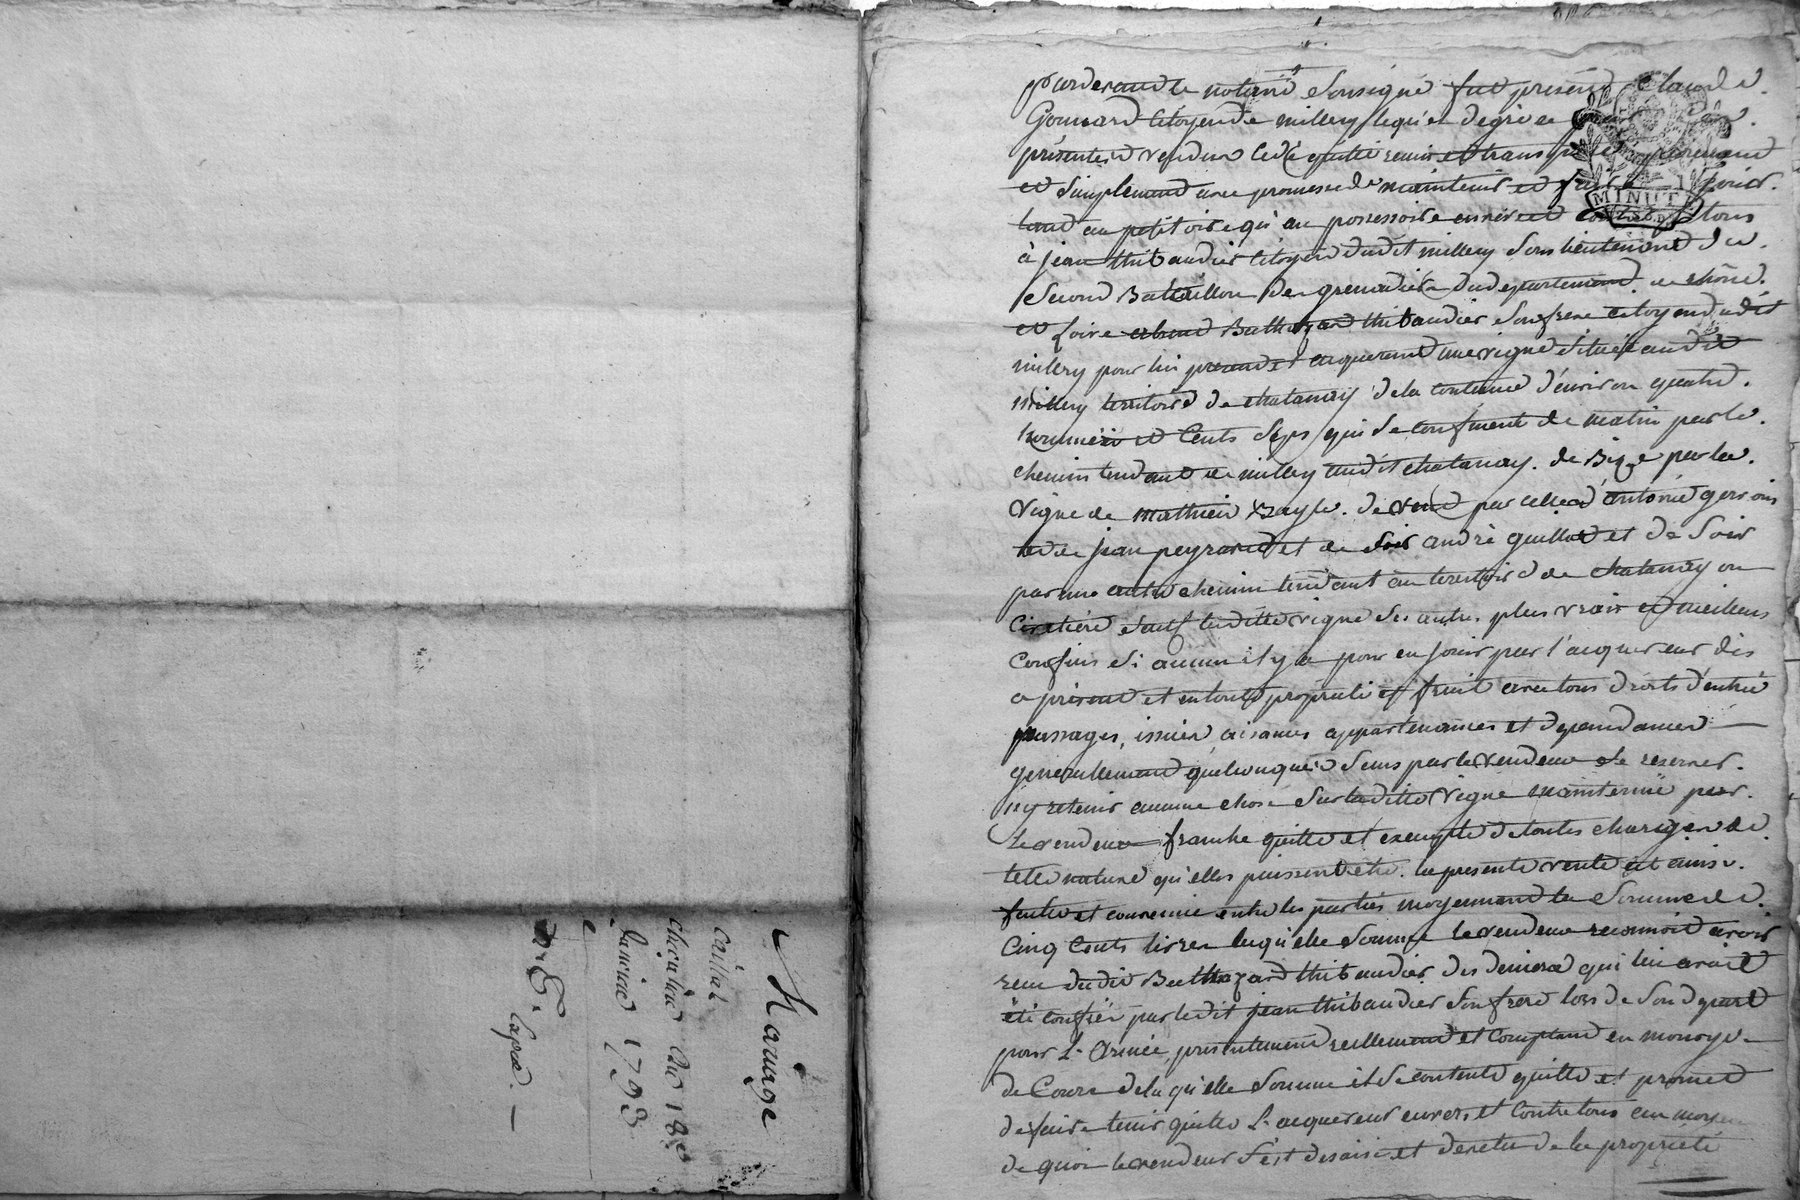 Mariage
du 18
janvier 1793
pardevant le notaire soussigné fut présent Claude
Gonnard citoyen de millery lequel de gré
présentes a vendu cédé quitté remis et transporté purement
et simplement avec promesse de maintenir et faire jouir
tant au petitoire qu'au possessoire envers et contre tous
à jean thibaudier citoyen dudit millery sous lieutenant du
second Bataillon de grenadiers du departement de rhône
et loire absent Balthazard thibaudier son frere citoyen dudit
millery pour lui prenant et acquerant une vigne située audit
millery territoire de chatanay de la contenue d'environ quatre
hommées et cents seps qui se confinent de matin par le
chemin tendant de millery audit chatanay. de Bize par la
vigne de mathieu Bayle. de vent par celle d'antoine gervais
et de jean peyrard et de soir andré guillot et de soir
par une autre chemin tendant au territoire de chatanay ou
sauf laditte vigne ses autres plus vrais et meilleurs
confins si aucun il y a pour en jouir par l'acquereur dès
a présent et en toute propriété et fruit avec tous droits d'entrée
passages, issues, aisances appartenances et dependances
generallement quelconques sans par le vendeur se reserver
ny retenir aucune chose sur laditte vigne maintenüe par
le vendeur franche quitte et exempte de toutes charges de
telle nature qu'elles puissent etre. la presente vente est ainsi
faite et convenüe entre les parties moyennant la somme de
cinq cents livres laquelle somme le vendeur reconnoit avoir
reçu dudit Balthazard thibaudier des deniers qui lui avait
été confiés par ledit jean thibaudier son frere lors de son depart
pour L'armée, presentement reellement et comptant en monoye
de cours de laquelle somme il se contente quitte et promet
de faire tenir quitte L'acquereur envers et contre tous au moyen
de quoi le vendeur s'est desaisi et devetu de la propriété
MINUTE